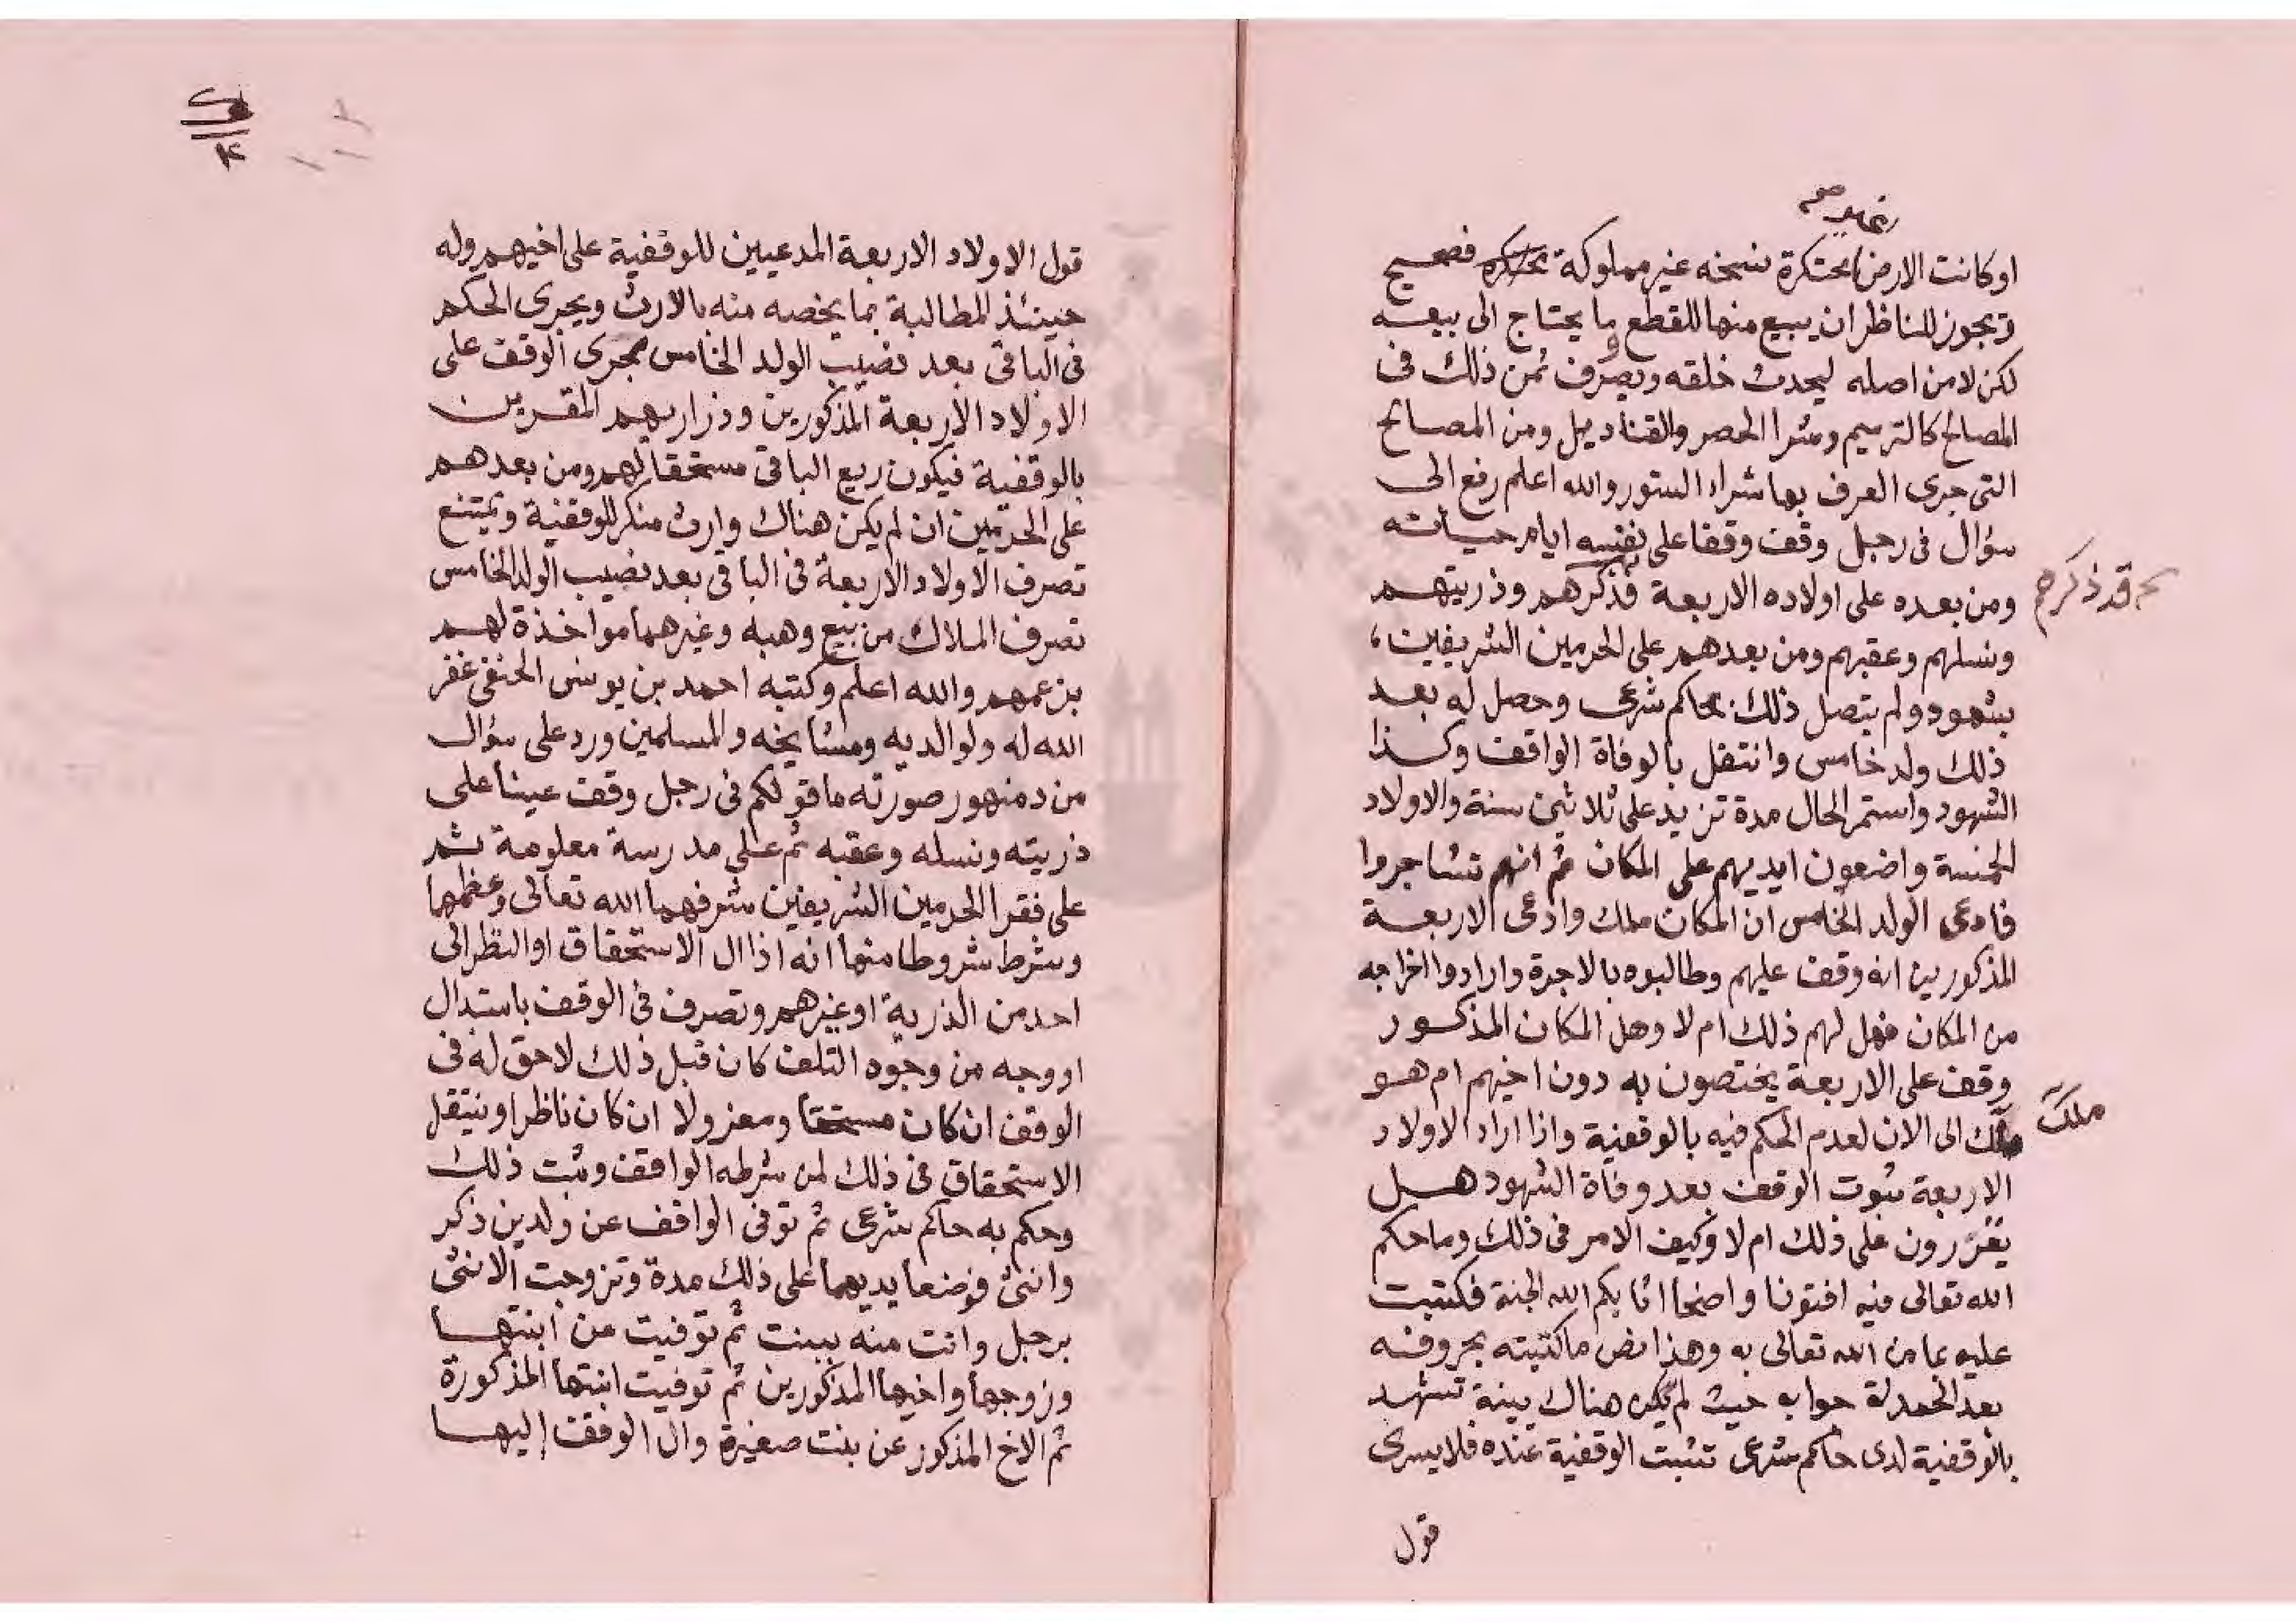 او كانت الارض محتكرة نسخه غير مملوكة محتكره فصحيح
ويجوز للناظر ان يبيع منها للقطع ما يحتاج الى بيعه
لكن لا من اصله ليحدث خلقه ويصرف ثمن ذلك فى
المصالح كالترميم وشرا الحصر والقناديل ومن المصالح
التى جرى العرف بها شراء الستور والله اعلم رفع الى
سؤال فى رجل وقف وقفا على نفسه ايام حياته
ومن بعده على اولاده الاربعة قد ذكرهم وذريتهم
قد ذكرهم
ونسلهم وعقبهم ومن بعدهم على الحرمين الشريفين،
بشهود ولم يتصل ذلك بحاكم شرعى وحصل له بعد
ذلك ولد خامس وانتقل بالوفاة الواقف وكذا
الشهود واستمر الحال مدة تزيد على ثلاثين سنة والاولاد
الخمسة واضعون ايديهم على المكان ثم انهم تشاجروا
فادعى الولد الخامس ان المكان ملك وادعى الاربعة
المذكورين انه وقف عليهم وطالبوه بالاجرة وارادوا اخراجه
من المكان فهل لهم ذلك ام لا وهل المكان المذكور
وقف على الاربعة يختصون به دون اخيهم ام هو
ملك الى الان لعدم الحكم فيه بالوقفية واذا اراد الاولاد
ملك
الاربعة ثبوت الوقف بعد وفاة الشهود هل
يقررون على ذلك ام لا وكيف الامر فى ذلك وما حكم
الله تعالى فيه افتونا واضحا اثابكم الله الجنة فكتبت
عليه بما من الله تعالى به وهذا نص ما كتبته بحروفه
بعد الحمدلة جوابه حيث لم يكن هناك بينة تشهد
بالوقفية لدى حاكم شرعى تثبت الوقفية عنده فلا يسرى
قول
قول الاولاد الاربعة المدعيين للوقفية على اخيهم وله
حينئذ المطالبة بما يخصه منه بالارث ويجرى الحكم
فى الباقى بعد نصيب الولد الخامس مجرى الوقف على
الاولاد الاربعة المذكورين وذراريهم المقرين
بالوقفية فيكون ريع الباقى مستحقا لهم ومن بعدهم
على الحرمين ان لم يكن هناك وارث منكر للوقفية ويمتنع
تصرف الاولاد الاربعة فى الباقى بعد نصيب الولد الخامس
تصرف الملاك من بيع وهبه وغيرهما مواخذة لهم
بزعمهم والله اعلم وكتبه احمد بن يونس الحنفى غفر
الله له ولوالديه ومشايخه والمسلمين ورد على سؤال
من دمنهور صورته ما قولكم فى رجل وقف عينا على
ذريته ونسله وعقبه ثم على مدرسة معلومة ثم
على فقرا الحرمين الشريفين شرفهما الله تعالى وعظمهما
وشرط شروطا منها انه اذا ال الاستحقاق او النظر الى
احد من الذرية او غيرهم وتصرف فى الوقف باستبدال
او وجه من وجوه التلف كان قبل ذلك لا حق له فى
الوقف ان كان مستحقا ومعزولا ان كان ناظرا وينتقل
الاستحقاق فى ذلك لمن شرطه الواقف وثبت ذلك
وحكم به حاكم شرعى ثم توفى الواقف عن ولدين ذكر
وانثى فوضعا يديهما على ذلك مدة وتزوجت الانثى
برجل واتت منه ببنت ثم توفيت عن ابنتها
وزوجها واخيها المذكورين ثم توفيت ابنتها المذكورة
ثم الاخ المذكور عن بنت صغيرة وال الوقف إليها